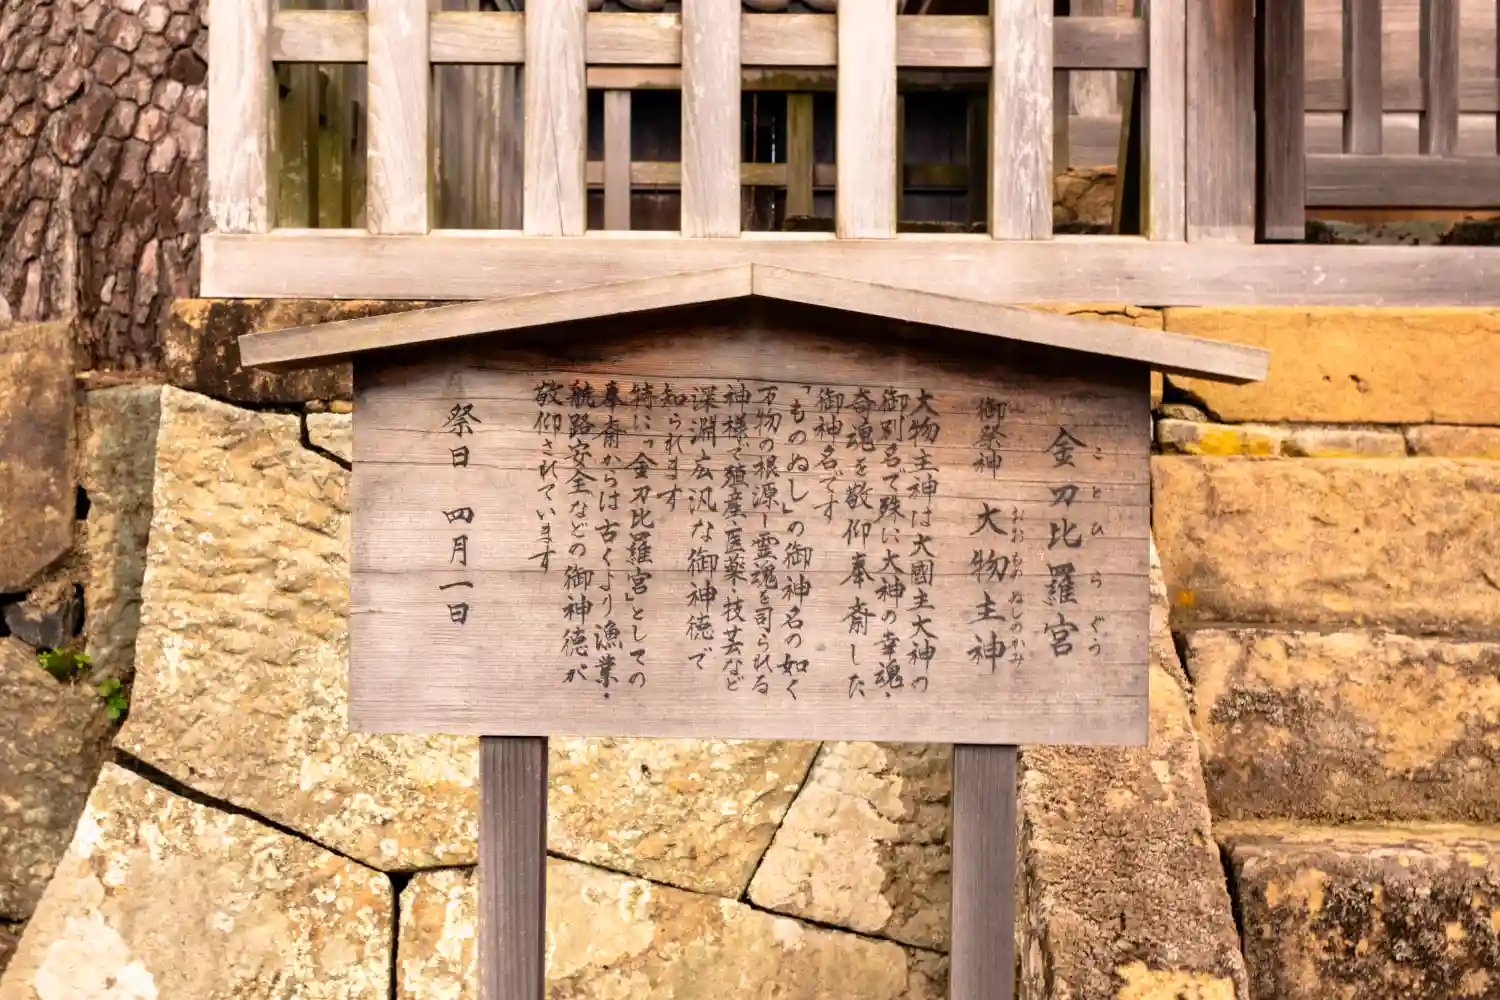 金刀比羅宮
ことひらぐう
御祭神　大物主神
おおものぬしのかみ
大物主神は大國主大神の
御別名で殊に大神の幸魂・
奇魂を敬仰奉斎した
御神名です
「ものぬし」の御神名の如く
万物の根源－霊魂を司られる
神様で殖産・医薬・技芸など
深淵広汎な御神徳で
知られます
特に「金刀比羅宮」としての
奉斎からは古くより漁業・
航路安全などの御神徳が
敬仰されています
祭日　四月一日